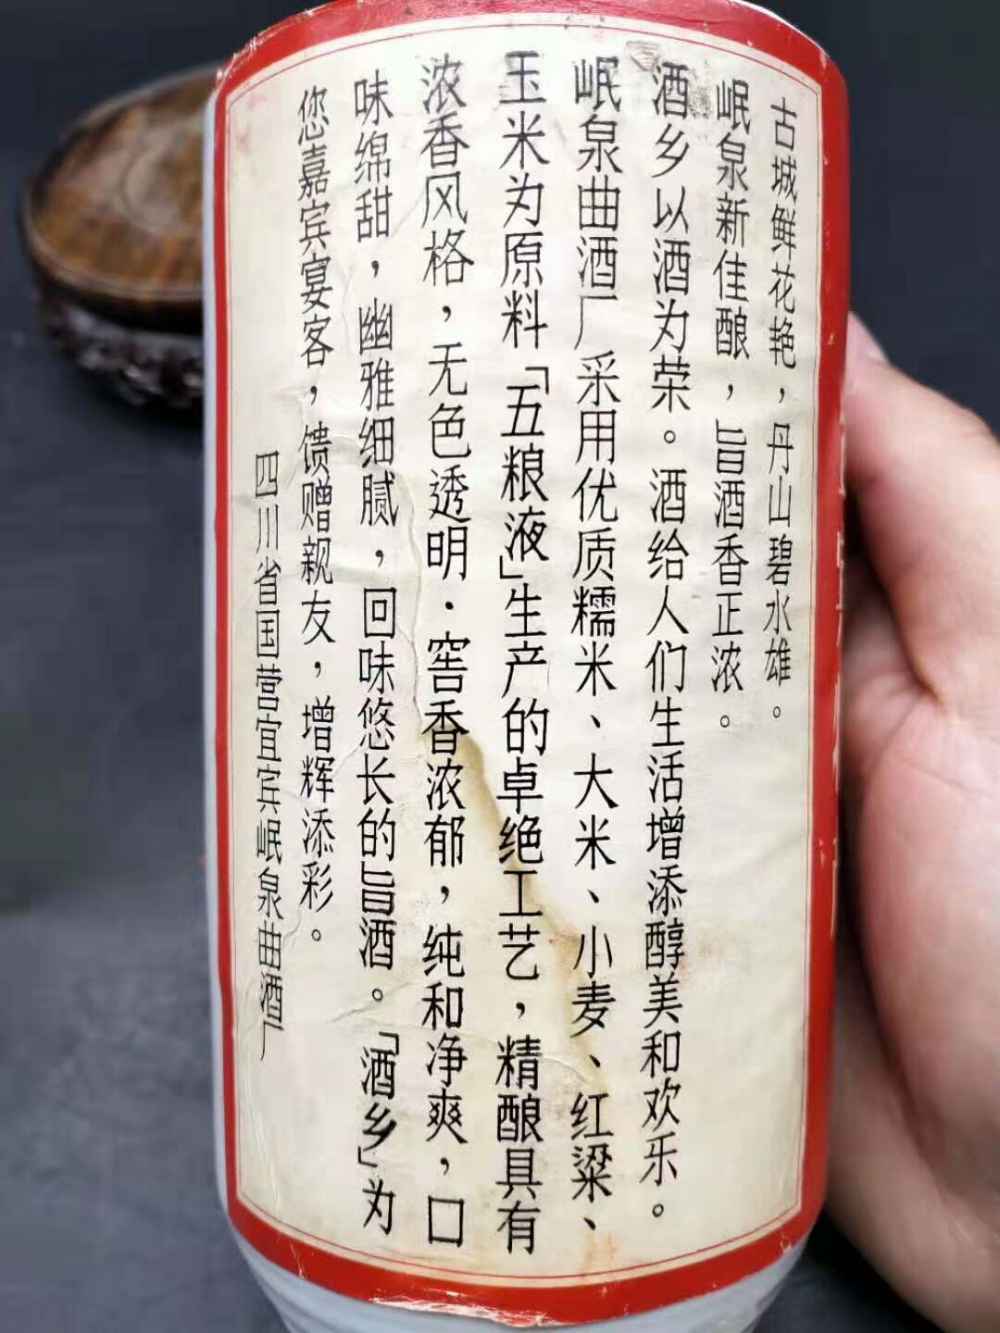 古城鲜花艳，丹山碧水雄。
岷泉新佳酿，旨酒香正浓。
酒乡以酒为荣。酒给人们生活增添醇美和欢乐。
岷泉曲酒厂采用优质糯米、大米、小麦、红粱、
玉米为原料「五粮液」生产的卓绝工艺，精酿具有
浓香风格，无色透明·窖香浓郁，纯和净爽，口
味绵甜，幽雅细腻，回味悠长的旨酒。「酒乡」为
您嘉宾宴客，馈赠亲友，增辉添彩。
四川省国营宜宾岷泉曲酒厂